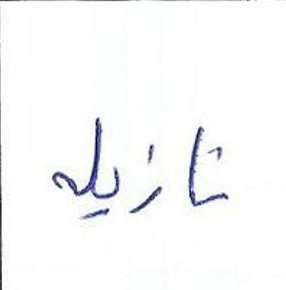 نازیلہ